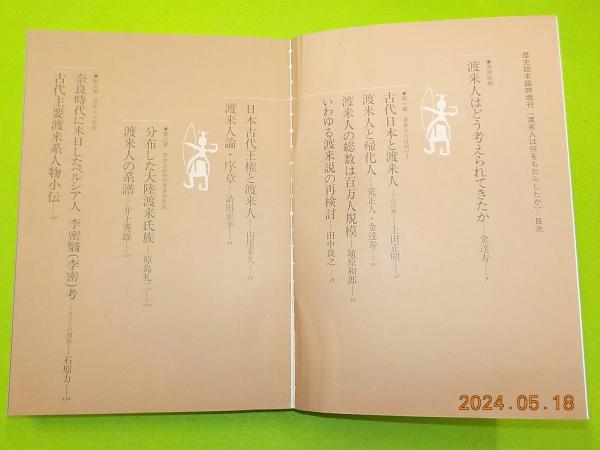 歴史読本臨時増刊〈渡来人は何をもたらしたか〉=目次
渡来人はどう考えられてきたか……金達寿……
古代日本と渡来人……上田正昭……
渡来人と帰化人……荒正人・金達寿……
渡来人の総数は百万人規模……埴原和郎……
いわゆる渡来説の再検討……田中良之……
日本古代王権と渡来人……山尾幸久……
渡来人論・序章……請田正幸……
分布した大陸渡来氏族……原島礼二……
渡来人の系譜……井上秀雄……
奈良時代に来日したペルシア人 李密翳(李密)考……石原力……
古代主要渡来系人物小伝……
2024.05.18